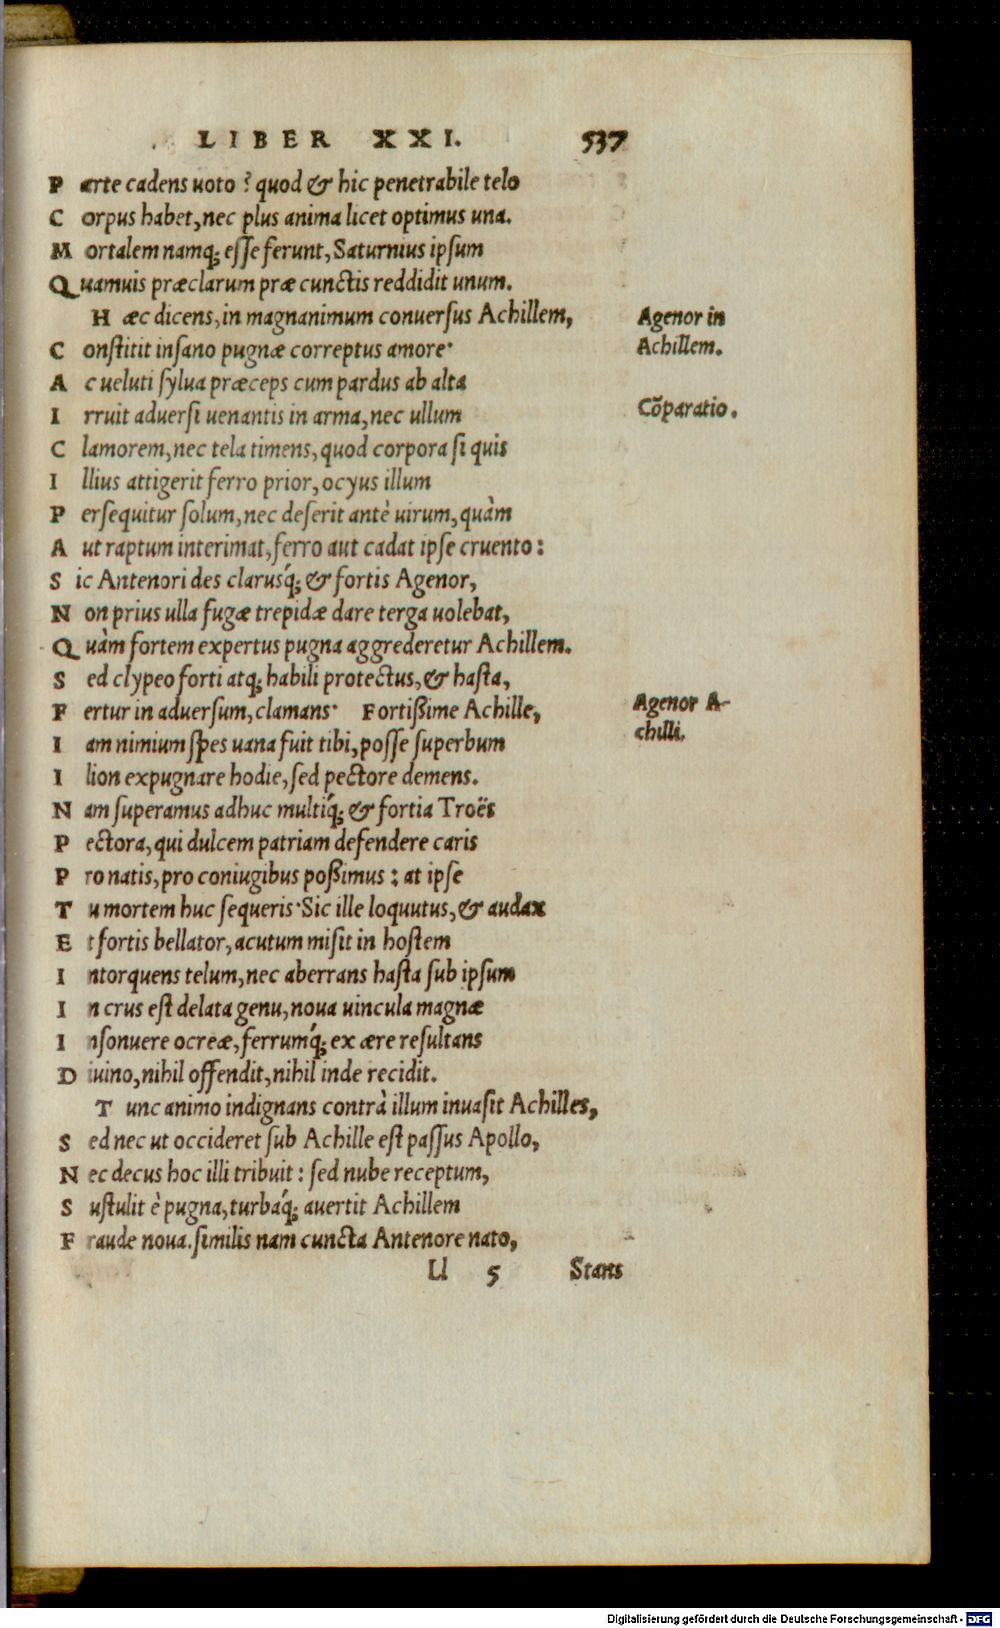 LIBER XXI. 537
Parte cadens uoto? quod & hic penetrabile telo
Corpus habet, nec plus anima licet optimus una.
Mortalem namq; esse ferunt, Saturnius ipsum
Quamuis præclarum præ cunctis reddidit unum.
Hæc dicens, in magnanimum conuersus Achillem,
Agenor in
Constitit insano pugnæ correptus amore·
Achillem.
Ac ueluti sylua præceps cum pardus ab alta
Irruit aduersi uenantis in arma, nec ullum
Cõparatio.
Clamorem, nec tela timens, quod corpora si quis
Illius attigerit ferro prior, ocyus illum
Persequitur solum, nec deserit antè uirum, quàm
Aut raptum interimat, ferro aut cadat ipse cruento:
Sic Antenorides clarusq́; & fortis Agenor,
Non prius ulla fugæ trepidæ dare terga uolebat,
Quàm fortem expertus pugna aggrederetur Achillem.
Sed clypeo forti atq; habili protectus, & hasta,
Fertur in aduersum, clamans· Fortißime Achille,
Agenor A-
chilli.
Iam nimium spes uana fuit tibi, posse superbum
Ilion expugnare hodie, sed pectore demens.
Nam superamus adhuc multiq́; & fortia Troës
Pectora, qui dulcem patriam defendere caris
Pro natis, pro coniugibus poßimus: at ipse
Tu mortem huc sequeris· Sic ille loquutus, & audax
Et fortis bellator, acutum misit in hostem
Intorquens telum, nec aberrans hasta sub ipsum
In crus est delata genu, noua uincula magnæ
Insonuere ocreæ, ferrumq́; ex ære resultans
Diuino, nihil offendit, nihil inde recidit.
Tunc animo indignans contrà illum inuasit Achilles,
Sed nec ut occideret sub Achille est passus Apollo,
Nec decus hoc illi tribuit: sed nube receptum,
Sustulit è pugna, turbaq́; auertit Achillem
Fraude noua. similis nam cuncta Antenore nato,
Ll 5 Stans
Digitalisierung gefördert durch die Deutsche Forschungsgemeinschaft - DFG